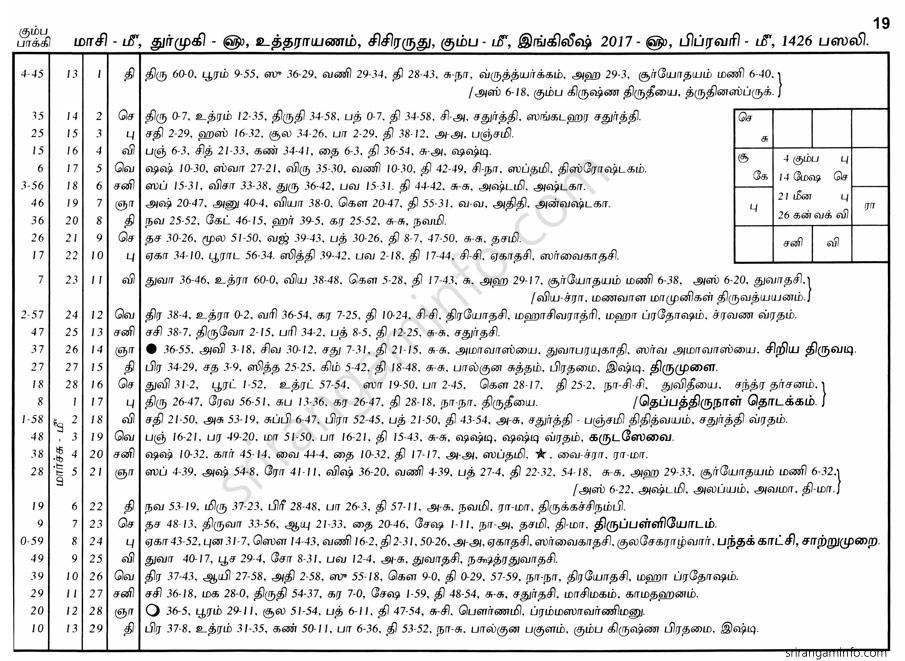 19
கும்ப
பாக்கி
மாசி - மீ, துர்முகி - ௵, உத்தராயணம், சிசிரருது, கும்ப - மீ, இங்கிலீஷ் 2017 - ௵, பிப்ரவரி - மீ, 1426 பஸலி.
4-45 13 1 தி திரு 60-0, பூரம் 9-55, ஸு 36-29, வணி 29-34, தி 28-43, சு-நா, வ்ருத்த்யர்க்கம், அஹ 29-3, சூர்யோதயம் மணி 6-40,
/அஸ் 6-18, கும்ப கிருஷ்ண திருதீயை, த்ருதினஸ்ப்ருக்.
35 14 2 செ திரு 0-7, உத்ரம் 12-35, திருதி 34-58, பத் 0-7, தி 34-58, சி-அ, சதுர்த்தி, ஸங்கடஹர சதுர்த்தி.
25 15 3 பு சதி 2-29, ஹஸ் 16-32, சூல 34-26, பா 2-29, தி 38-12, அ-அ, பஞ்சமி.
15 16 4 வி பஞ் 6-3, சித் 21-33, கண் 34-41, தை 6-3, தி 36-54, சு-அ, ஷஷ்டி.
6 17 5 வெ ஷஷ் 10-30, ஸ்வா 27-21, விரு 35-30, வணி 10-30, தி 42-49, சி-நா, ஸப்தமி, திஸ்ரோஷ்டகம்.
3-56 18 6 சனி ஸப் 15-31, விசா 33-38, துரு 36-42, பவ 15-31, தி 44-42, சு-சு, அஷ்டமி, அஷ்டகா.
46 19 7 ஞா அஷ் 20-47, அனு 40-4, வியா 38-0, கௌ 20-47, தி 55-31, வ-வ, அதிதி, அன்வஷ்டகா.
36 20 8 தி நவ 25-52, கேட் 46-15, ஹர் 39-5, கர 25-52, சு-சு, நவமி.
26 21 9 செ தச 30-26, மூல 51-50, வஜ் 39-43, பத் 30-26, தி 8-7, 47-50, சு-சு, தசமி.
17 22 10 பு ஏகா 34-10, பூராட 56-34, ஸித்தி 39-42, பவ 2-18, தி 17-44, சி-சி, ஏகாதசி, ஸர்வைகாதசி.
7 23 11 வி துவா 36-46, உத்ரா 60-0, விய 38-48, கௌ 5-28, தி 17-43, சு, அஹ 29-17, சூர்யோதயம் மணி 6-38, அஸ் 6-20, துவாதசி,
/விய-ச்ரா, மணவாள மாமுனிகள் திருவத்யயனம்.
2-57 24 12 வெ திர 38-4, உத்ரா 0-2, வரி 36-54, கர 7-25, தி 10-24, சி-சி, திரயோதசி, மஹாசிவராத்ரி, மஹா ப்ரதோஷம், ச்ரவண வ்ரதம்.
47 25 13 சனி சசி 38-7, திருவோ 2-15, பரி 34-2, பத் 8-5, தி 12-25, சு-சு, சதுர்தசி.
37 26 14 ஞா ● 36-55, அவி 3-18, சிவ 30-12, சது 7-31, தி 21-15, சு-சு, அமாவாஸ்யை, துவாபரயுகாதி, ஸர்வ அமாவாஸ்யை, சிறிய திருவடி.
27 27 15 தி பிர 34-29, சத 3-9, ஸித்த 25-25, கிம் 5-42, தி 18-48, சு-சு, பால்குன சுத்தம், பிரதமை, இஷ்டி. திருமுளை.
18 28 16 செ துவி 31-2, பூரட் 1-52, உத்ரட் 57-54, ஸா 19-50, பா 2-45, கௌ 28-17, தி 25-2, நா-சி-சி, துவிதீயை, சந்த்ர தர்சனம்,
8 1 17 பு திரு 26-47, ரேவ 56-51, சுப 13-36, கர 26-47, தி 28-18, நா-நா, திருதீயை. /தெப்பத்திருநாள் தொடக்கம்.
1-58 2 18 வி சதி 21-50, அசு 53-19, சுப்பி 6-47, பிரா 52-45, பத் 21-50, தி 43-54, அ-சு, சதுர்த்தி - பஞ்சமி திதித்வயம், சதுர்த்தி வ்ரதம்.
48 3 19 வெ பஞ் 16-21, பர 49-20, மா 51-50, பா 16-21, தி 15-43, சு-சு, ஷஷ்டி, ஷஷ்டி வ்ரதம், கருடஸேவை.
38 4 20 சனி ஷஷ் 10-32, கார் 45-14, வை 44-4, தை 10-32, தி 17-17, அ-அ, ஸப்தமி. ★, வை-ச்ரா, ரா-மா.
மார்ச்சு - மீ
28 5 21 ஞா ஸப் 4-39, அஷ் 54-8, ரோ 41-11, விஷ் 36-20, வணி 4-39, பத் 27-4, தி 22-32, 54-18, சு-சு, அஹ 29-33, சூர்யோதயம் மணி 6-32,
/அஸ் 6-22, அஷ்டமி, அலப்யம், அவமா, தி-மா.
19 6 22 தி நவ 53-19, மிரு 37-23, பிரீ 28-48, பா 26-3, தி 57-11, அ-சு, நவமி, ரா-மா, திருக்கச்சிநம்பி.
9 7 23 செ தச 48-13, திருவா 33-56, ஆயு 21-33, தை 20-46, சேஷ 1-11, நா-அ, தசமி, தி-மா, திருப்பள்ளியோடம்.
0-59 8 24 பு ஏகா 43-52, புன 31-7, ஸௌ 14-43, வணி 16-2, தி 2-31, 50-26, அ-அ, ஏகாதசி, ஸர்வைகாதசி, குலசேகராழ்வார், பந்தக் காட்சி, சாற்றுமுறை.
49 9 25 வி துவா 40-17, பூச 29-4, சோ 8-31, பவ 12-4, அ-சு, துவாதசி, நக்ஷத்ரதுவாதசி.
39 10 26 வெ திர 37-43, ஆயி 27-58, அதி 2-58, ஸு 55-18, கௌ 9-0, தி 0-29, 57-59, நா-நா, திரயோதசி, மஹா ப்ரதோஷம்.
29 11 27 சனி சசி 36-18, மக 28-0, திருதி 54-37, கர 7-0, சேஷ 1-59, தி 48-54, சு-சு, சதுர்தசி, மாசிமகம், காமதஹனம்.
20 12 28 ஞா ○ 36-5, பூரம் 29-11, சூல 51-54, பத் 6-11, தி 47-54, சு-சி, பௌர்ணமி, ப்ரம்மஸாவர்ணிமனு.
10 13 29 தி பிர 37-8, உத்ரம் 31-35, கண் 50-11, பா 6-36, தி 53-52, நா-சு, பால்குன பகுளம், கும்ப கிருஷ்ண பிரதமை, இஷ்டி.
செ
சு
சூ
கே
4 கும்ப பு
14 மேஷ செ
21 மீன பு
26 கன் வக் வி
பு
ரா
சனி
வி
srirangaminfo.com
srirangaminfo.com